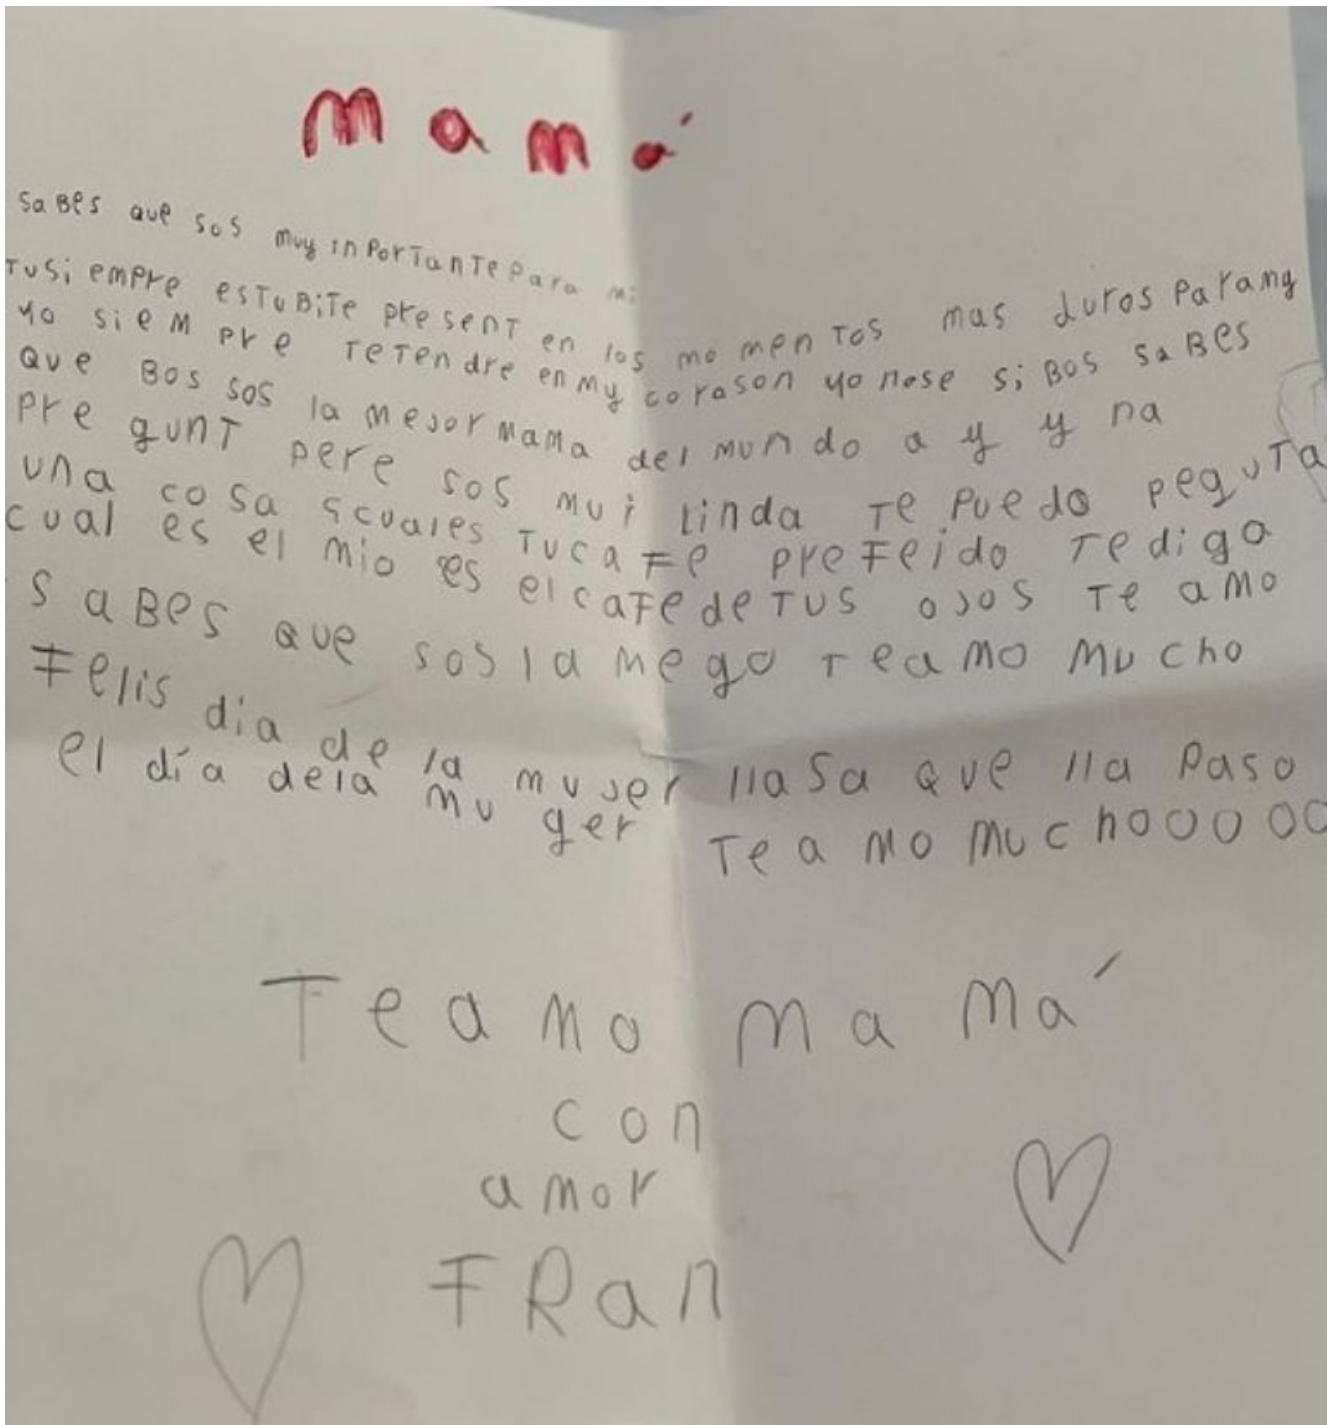 mamá
saBes que sos muy inPorTanTe Para mi
Tusi empre esTuBiTe presenT en los mo menTos mas duros Para my
yo siem pre TeTendre en my corason yo nose si Bos saBes
que Bos sos la mejor mama del mundo a y y na
pre gunT pere sos mui Linda Te Puedo peguTa
una cosa scuales Tuca Fe preFeido Tediga
cual es el mio es el caFe de Tus ojos Te amo
saBes que sos la mego Te amo mucho
Felis dia de la mujer llasa que lla Paso
el día dela mu ger Te a mo muchooooo
Te amo ma má
con
amor
FRan